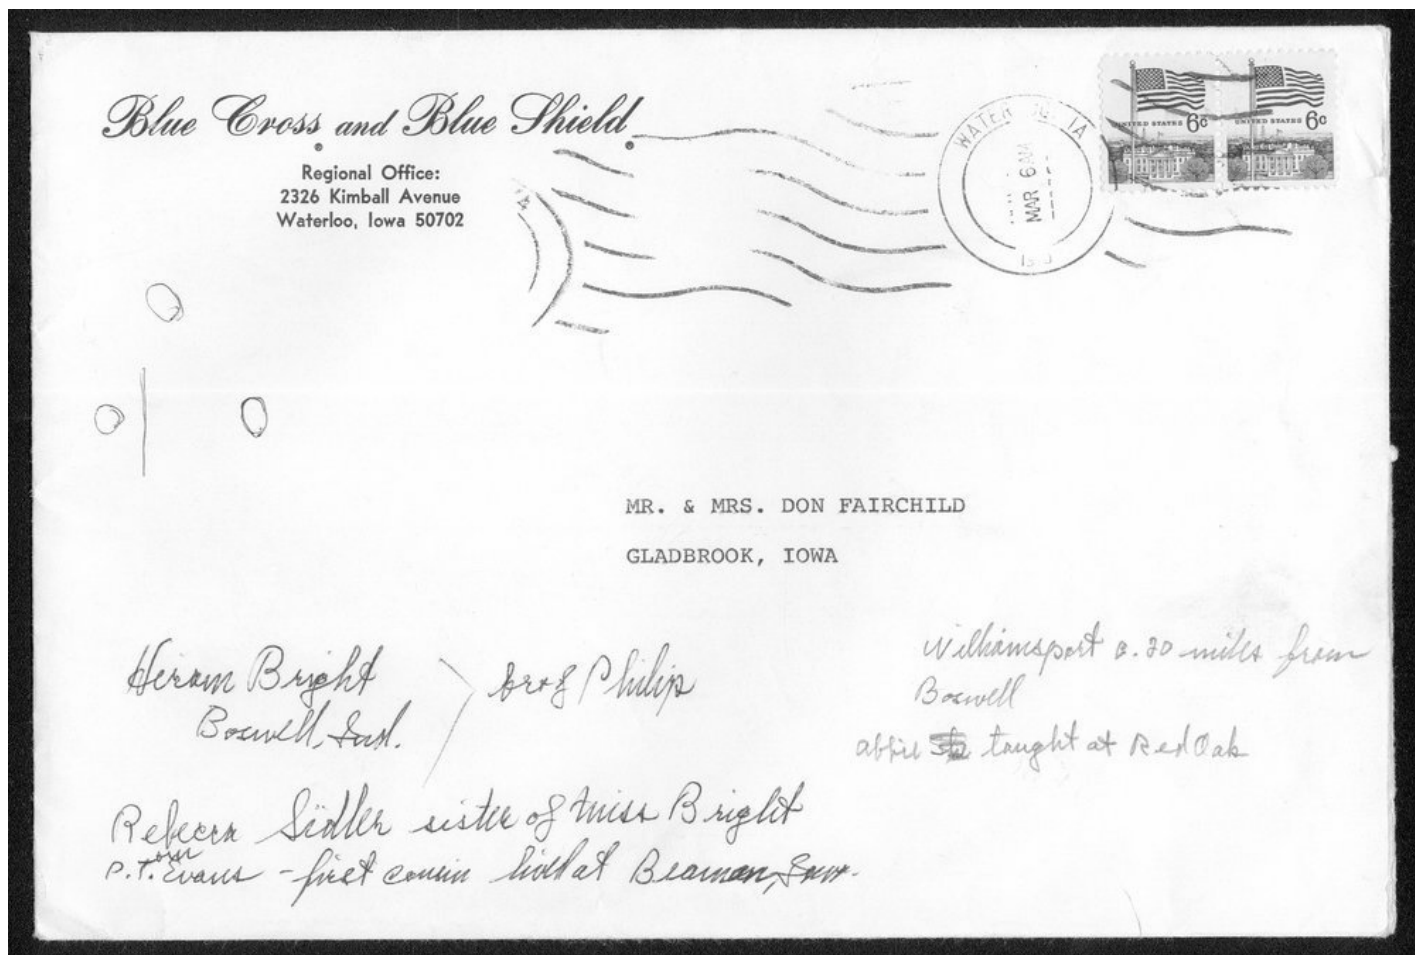 Blue Cross and Blue Shield
Regional Office:
2326 Kimball Avenue
Waterloo, Iowa 50702
WATER IA
MAR 6 AM
UNITED STATES 6c
UNITED STATES 6c
MR. & MRS. DON FAIRCHILD
GLADBROOK, IOWA
Hiram Bright
Boswell, Ind.
bro of Philip
Williamsport c. 20 miles from
Boswell
Abbie taught at Red Oak
Rebecca Sidler sister of Miss Bright
P.T. Evans - first cousin lived at Beaman, Iowa.